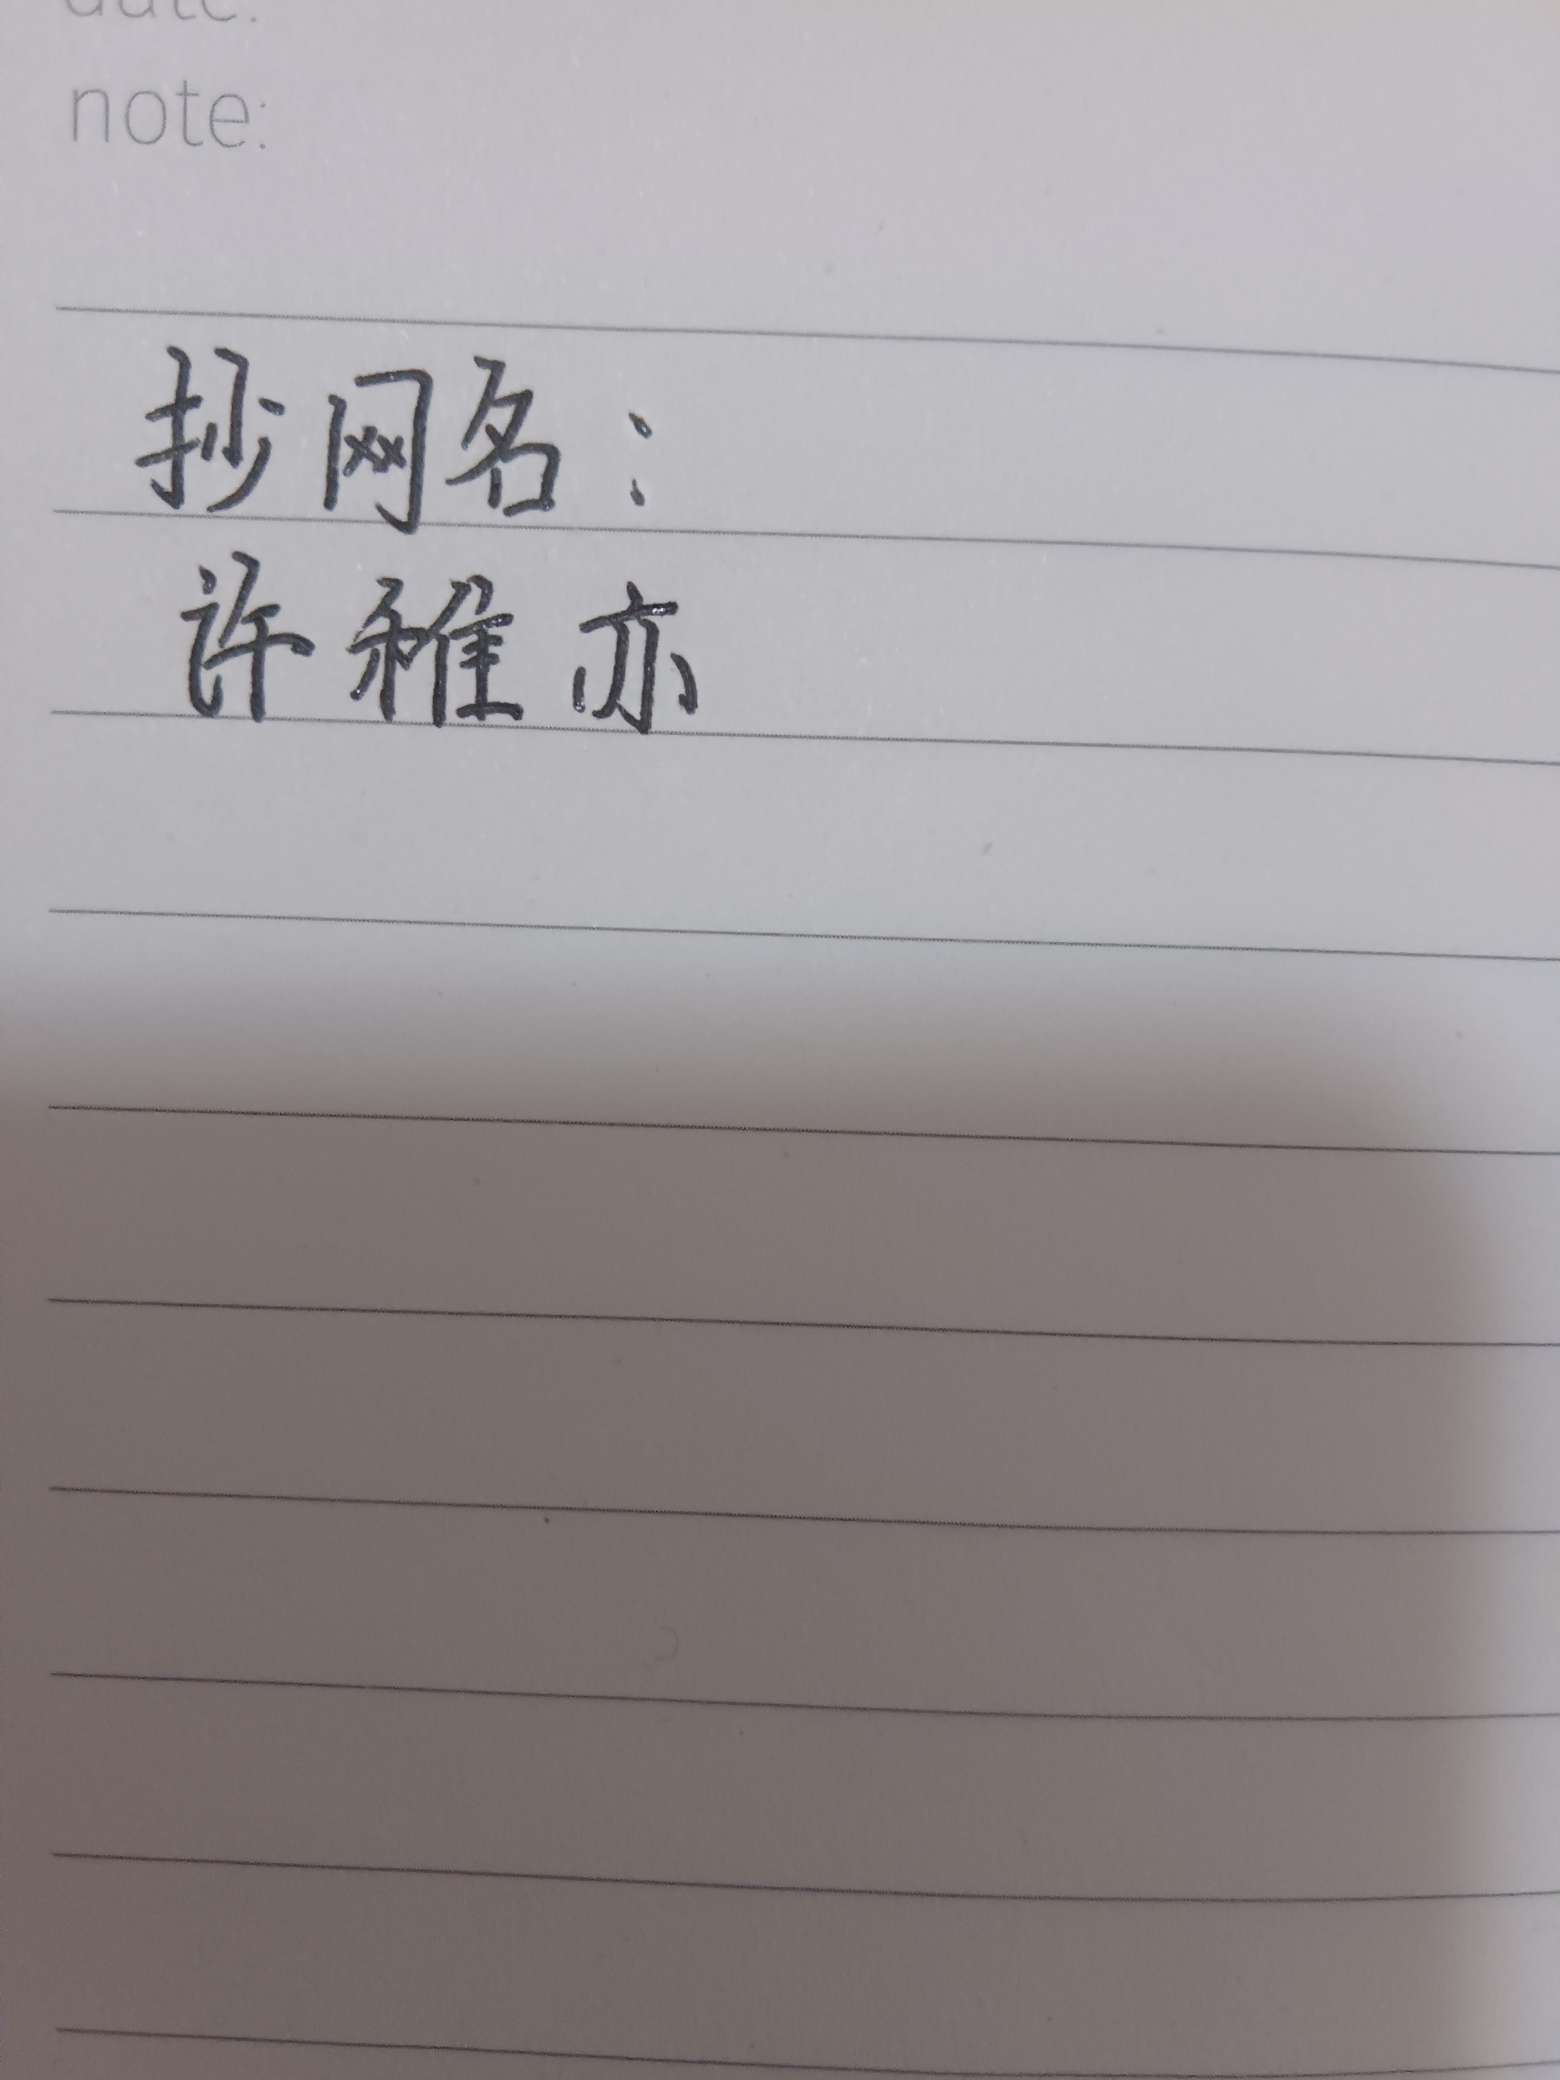 date:
note:
抄网名：
许稚亦